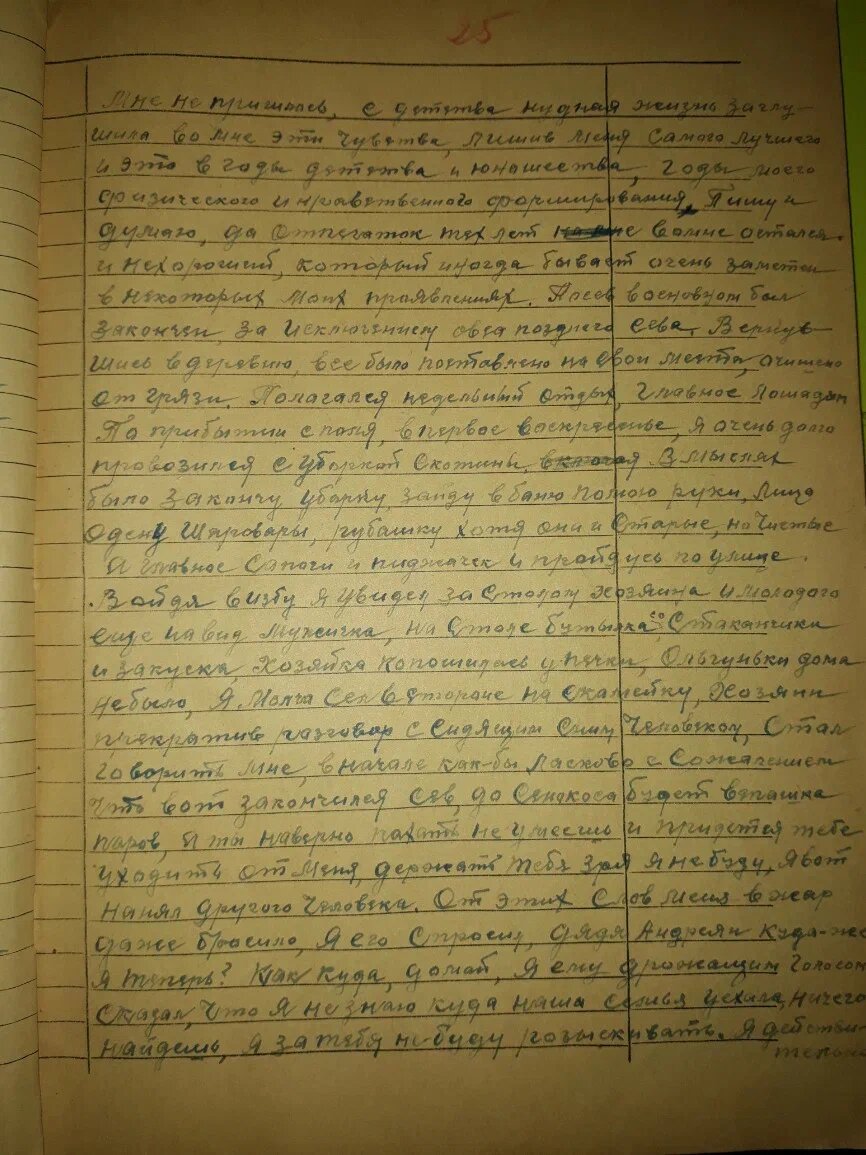 25
Мне не пришлось, с детства нудная жизнь заглу-
шила во мне эти чувства, лишив меня самого лучшего
и это в годы детства и юношества, годы моего
физического и нравственного формирования, Пишу и
думаю, да отпечаток тех лет во мне остался.
и нехороший, который иногда бывает очень заметен
в некоторых моих проявлениях. Посев восновном был
закончен, за исключением овса позднего сева, Вернув-
шись в деревню, все было поставлено на свои места, очищено
от грязи. Полагался недельный отдых, главное лошадям
По прибытии с поля, в первое воскресенье, я очень долго
провозился с уборкой скотины, В мыслях
было закончу уборку, зайду в баню помою руки, лицо
Одену шаровары, рубашку хотя они и старые, но чистые
А главное сапоги и пиджачек и пройдусь по улице.
Войдя в избу я увидел за столом хозяина и молодого
еще на вид мужичка, на столе бутылка со стаканчики
и закуска, хозяйка копошилась у печки, Ольгуньки дома
небыло, я молча сел в стороне на скамейку, Хозяин
прекратив разговор с сидящим с ним человеком, стал
говорить мне, вначале как-бы ласково с сожалением
что вот закончился сев, до сенокоса будет вспашка
паров, а ты наверно пахать не умеешь и придется тебе
уходить от меня, держать тебя зря я не буду, я вот
нанял другого человека. От этих слов меня в жар
даже бросило, я его спросил, дядя Андреян куда-же
я теперь? Как куда, домой, я ему дрожащим голосом
сказал, что я не знаю куда наша семья уехала, ничего
найдешь, я за тебя не буду розыскивать. Я действи-
тельно